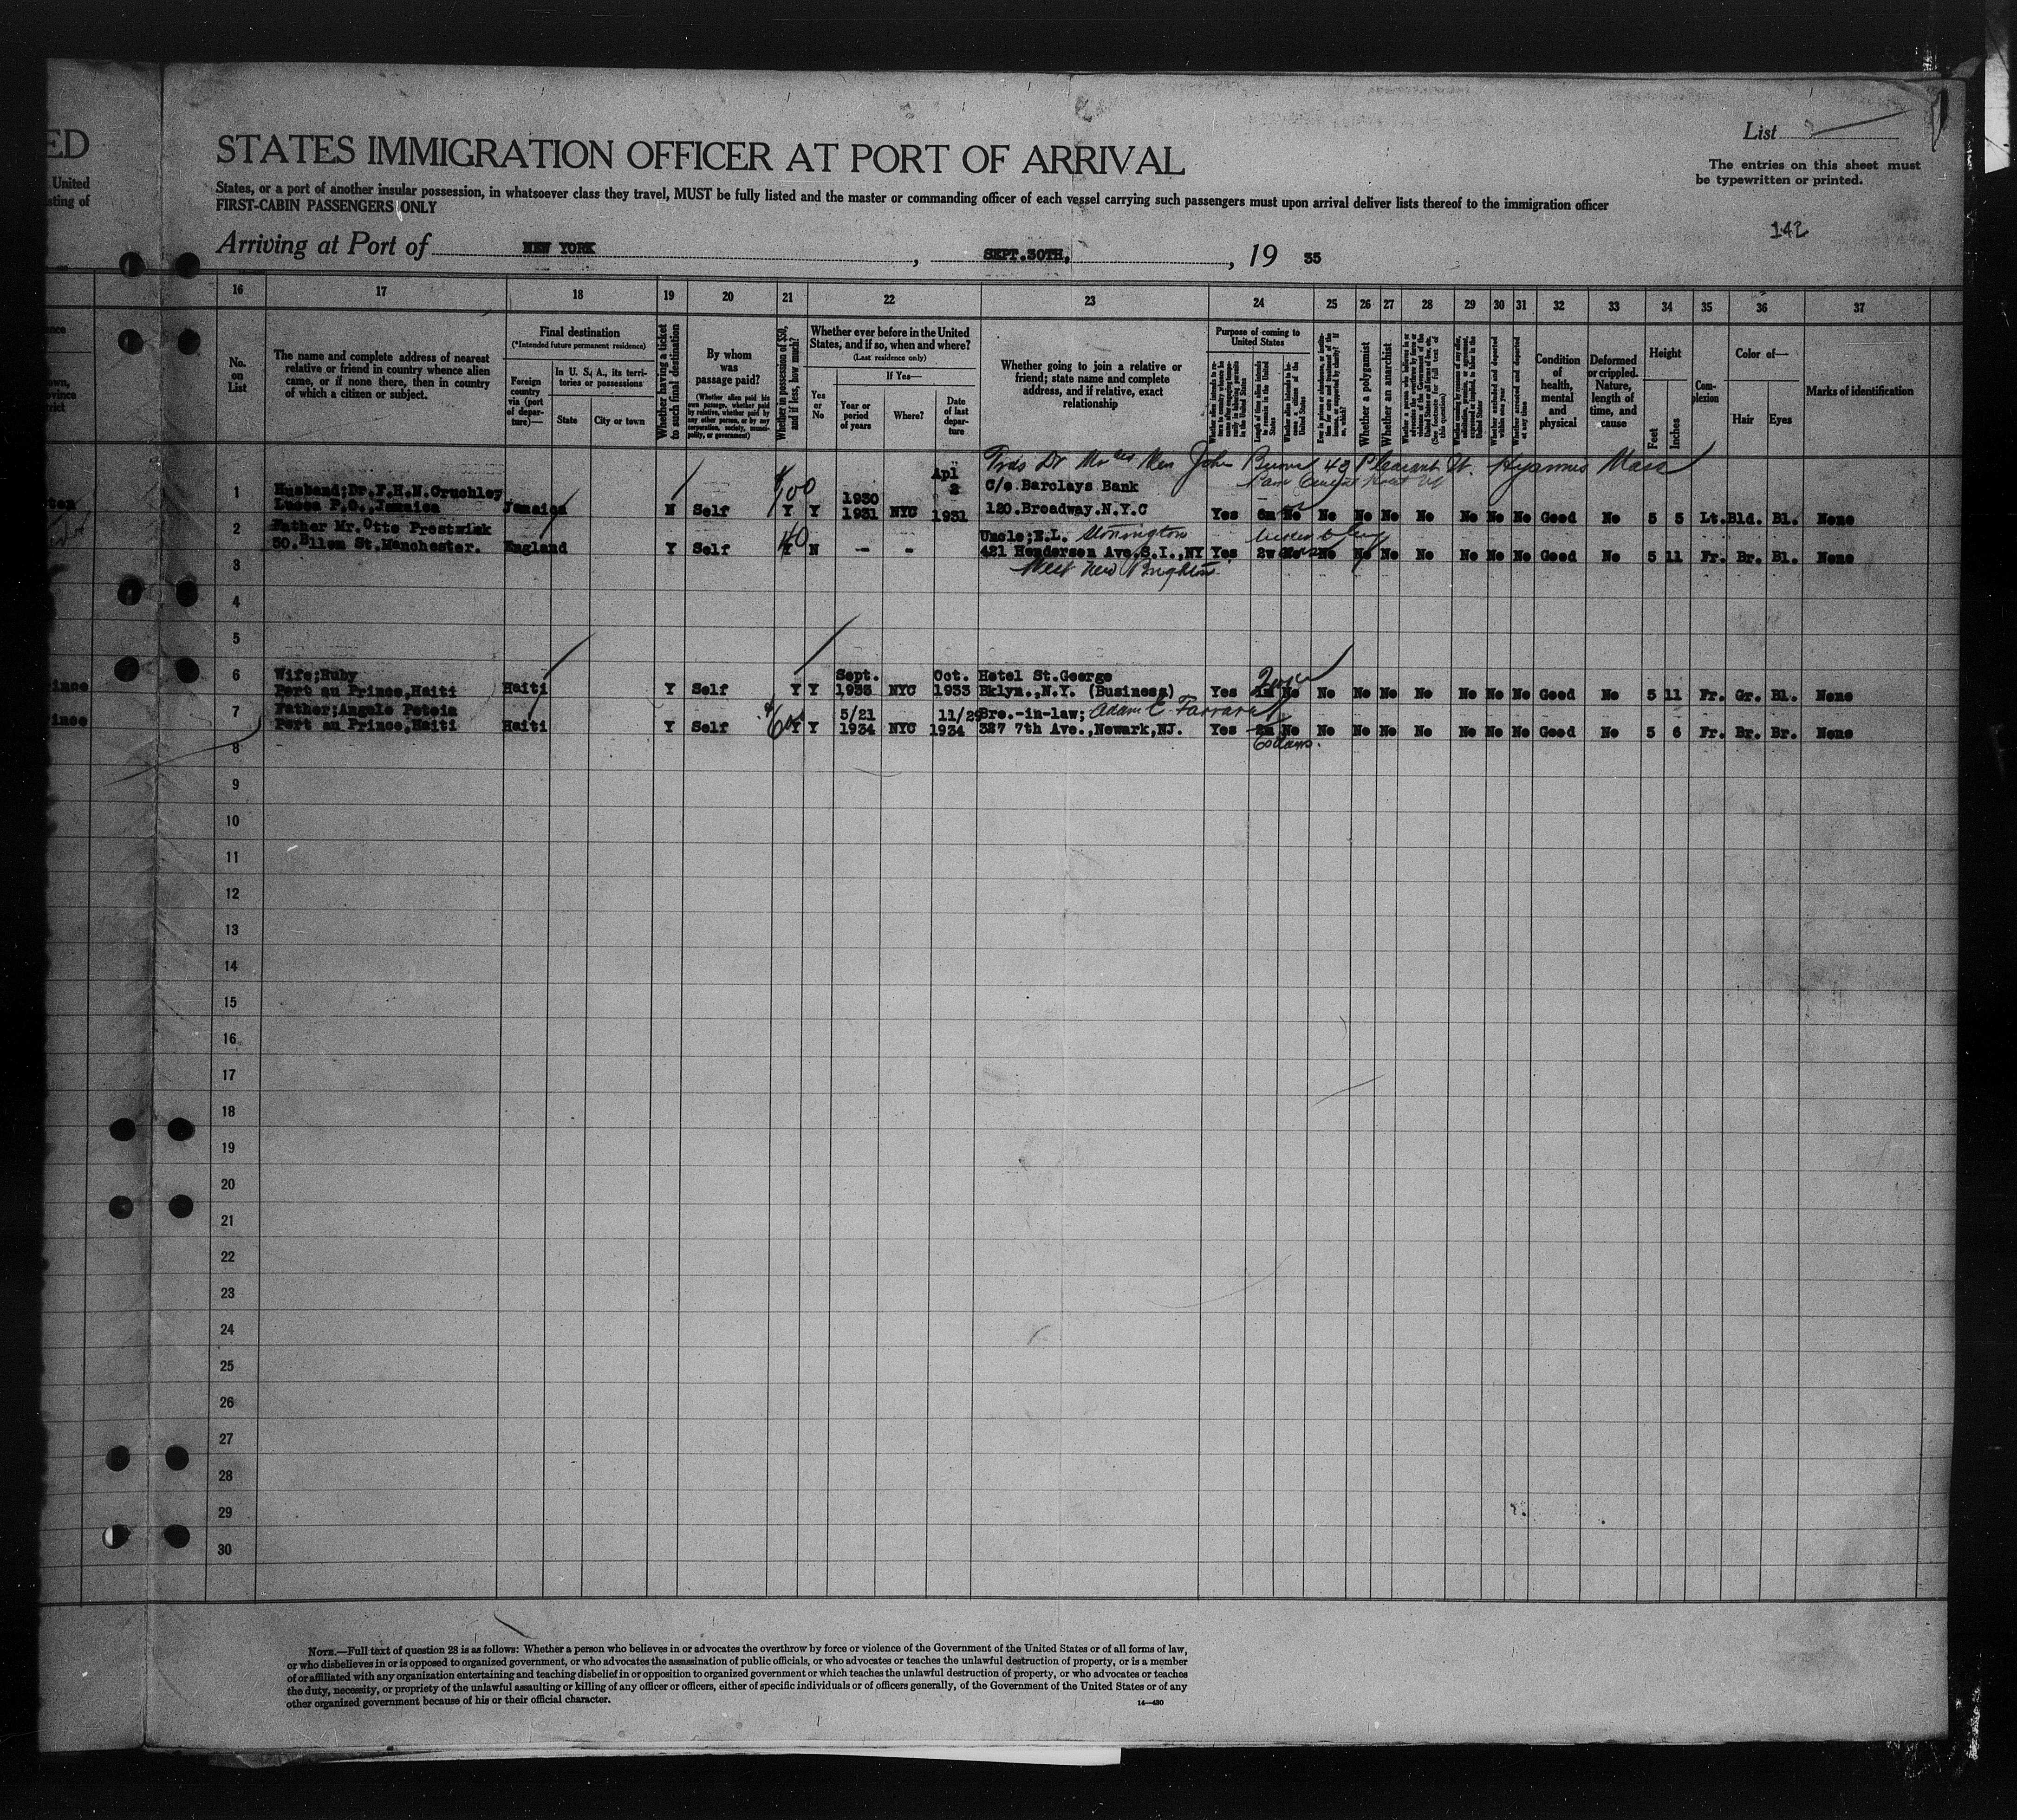 ED
STATES IMMIGRATION OFFICER AT PORT OF ARRIVAL
List
The entries on this sheet must
be typewritten or printed.
United
States, or a port of another insular possession, in whatsoever class they travel, MUST be fully listed and the master or commanding officer of each vessel carrying such passengers must upon arrival deliver lists thereof to the immigration officer
sting of
FIRST-CABIN PASSENGERS ONLY
142
Arriving at Port of NEW YORK, SEPT.30TH, 19 35
16 17 18 19 20 21 22 23 24 25 26 27 28 29 30 31 32 33 34 35 36 37
No. on List
The name and complete address of nearest relative or friend in country whence alien came, or if none there, then in country of which a citizen or subject.
Final destination
(*Intended future permanent residence)
Foreign country via (port of departure)—
In U. S. A., its territories or possessions
State
City or town
Whether having a ticket to such final destination
By whom was passage paid?
(Whether alien paid his own passage, whether paid by relative, whether paid by any other person, or by any corporation, society, municipality, or government)
Whether in possession of $50, and if less, how much?
Whether ever before in the United States, and if so, when and where?
(Last residence only)
Yes or No
If Yes—
Year or period of years
Where?
Date of last departure
Whether going to join a relative or friend; state name and complete address, and if relative, exact relationship
Purpose of coming to United States
Length of time alien intends to remain in the United States
Whether a polygamist
Whether an anarchist
(See footnote for full text of this question)
Whether arrested and deported at any time
Condition of health, mental and physical
Deformed or crippled. Nature, length of time, and cause
Height
Feet
Inches
Complexion
Color of—
Hair
Eyes
Marks of identification
John 48 Pleasant St. Hyannis Mass
1 Husband;Dr.F.H.N.Cruchley Apl 2 C/o.Barclays Bank
Lucea P.O.,Jamaica Jamaica N Self 100 Y Y 1930 1931 NYC 1931 120.Broadway.N.Y.C Yes 6m No No No No No No No No Good No 5 5 Lt. Bld. Bl. None
2 Father Mr.Otto Prestwisk Uncle;E.L.
50. St.Manchester. England Y Self 40 Y N - - 421 Henderson Ave.S.I.,NY Yes 2w No No No No No No No No Good No 5 11 Fr. Br. Bl. None
3 West New Brighton
4
5
6 Wife;Ruby Sept. Oct. Hotel St.George
Port au Prince,Haiti Haiti Y Self Y Y 1933 NYC 1933 Bklyn.,N.Y. (Business) Yes No No No No No No No No Good No 5 11 Fr. Gr. Bl. None
7 Father;Angelo Petoia 5/21 11/29 Bro.-in-law; Adam C. Farrara
Port au Prince,Haiti Haiti Y Self Y Y 1934 NYC 1934 327 7th Ave.,Newark,NJ. Yes 2m No No No No No No No No Good No 5 6 Fr. Br. Br. None
60 days.
8
9
10
11
12
13
14
15
16
17
18
19
20
21
22
23
24
25
26
27
28
29
30
NOTE.—Full text of question 28 is as follows: Whether a person who believes in or advocates the overthrow by force or violence of the Government of the United States or of all forms of law,
or who disbelieves in or is opposed to organized government, or who advocates the assassination of public officials, or who advocates or teaches the unlawful destruction of property, or is a member
of or affiliated with any organization entertaining and teaching disbelief in or opposition to organized government or which teaches the unlawful destruction of property, or who advocates or teaches
the duty, necessity, or propriety of the unlawful assaulting or killing of any officer or officers, either of specific individuals or of officers generally, of the Government of the United States or of any
other organized government because of his or their official character.
14—430